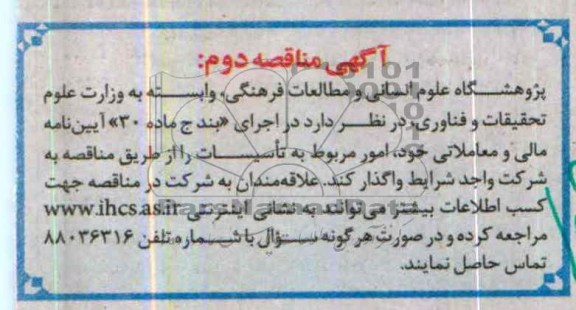 آگهی مناقصه دوم:
پژوهشگاه علوم انسانی و مطالعات فرهنگی، وابسته به وزارت علوم
تحقیقات و فناوری، در نظر دارد در اجرای «بند ج ماده ۳۰» آیین‌نامه
مالی و معاملاتی خود، امور مربوط به تأسیسات را از طریق مناقصه به
شرکت واجد شرایط واگذار کند. علاقه‌مندان به شرکت در مناقصه جهت
کسب اطلاعات بیشتر می‌توانند به نشانی اینترنتی www.ihcs.as.ir
مراجعه کرده و در صورت هرگونه سؤال با شماره تلفن ۸۸۰۳۶۳۱۶
تماس حاصل نمایند.